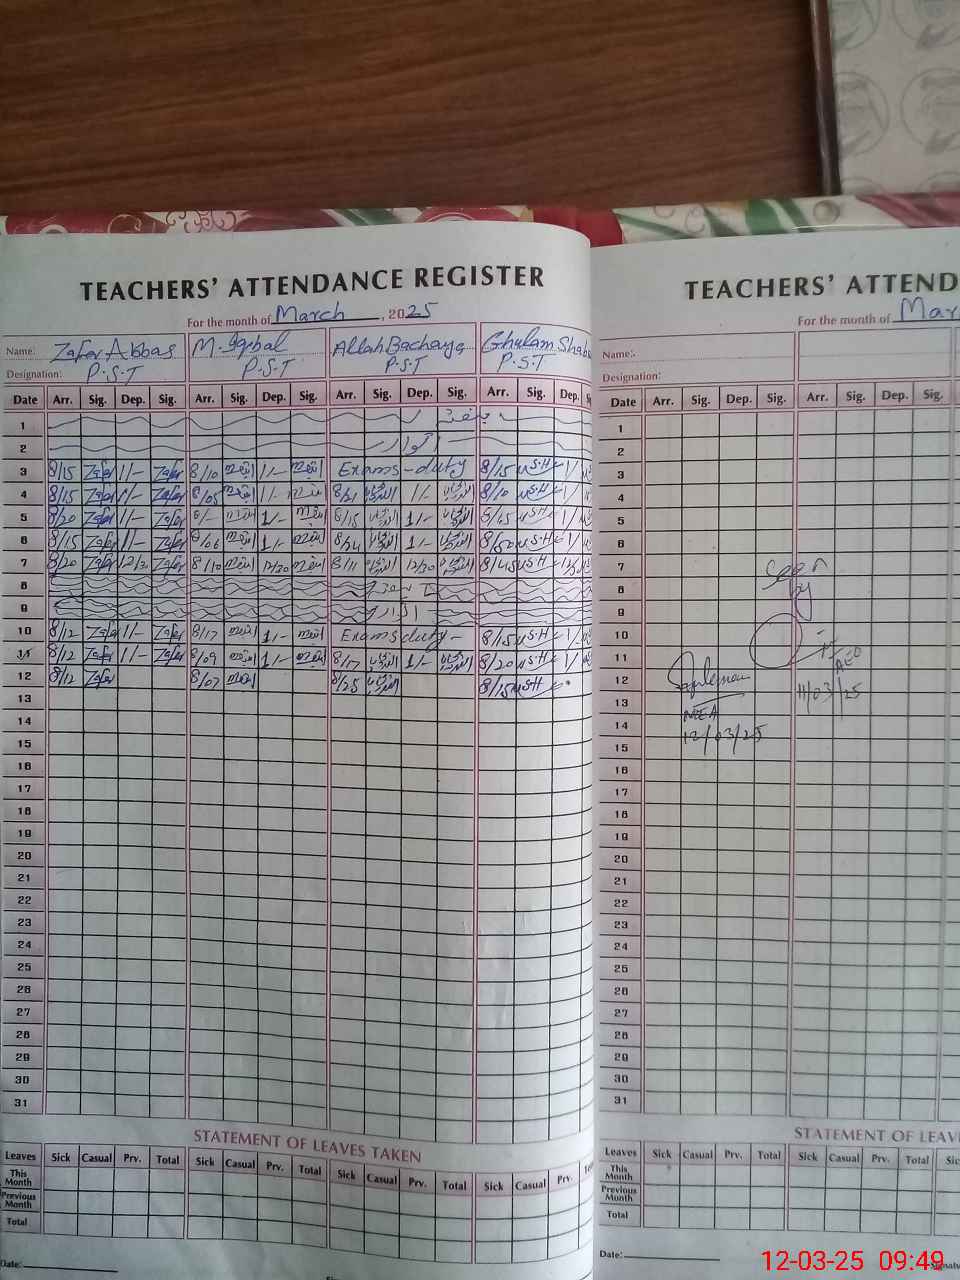 TEACHERS' ATTENDANCE REGISTER
For the month of March, 2025
Name: Zafar Abbas M. Iqbal Allah Bachaya Ghulam
Designation: P.S.T P.S.T P.S.T P.S.T
Date Arr. Sig. Dep. Sig. Arr. Sig. Dep. Sig. Arr. Sig. Dep. Sig. Arr. Sig. Dep.
1 ہفتہ
2 اتوار
3 8/15 Zafar 1/- Zafar 8/10 1/- Exams-duty 8/15 M.S.H 1/
4 8/15 Zafar 1/- Zafar 8/05 1/- 8/21 1/- 8/10 M.S.H 1/
5 8/20 Zafar 1/- Zafar 8/- 1/- 8/15 1/- M.S.H 1/
6 8/15 Zafar 1/- Zafar 8/06 1/- 8/24 1/- 8/50 M.S.H 1/
7 8/20 Zafar 12/30 Zafar 8/10 12/30 8/11 12/30 8/45 M.S.H
8
9 اتوار
10 8/12 Zafar 1/- Zafar 8/17 1/- Exams duty - 8/15 M.S.H 1/
11 8/12 Zafar 1/- Zafar 8/09 1/- 8/17 1/- 8/20 M.S.H 1/
12 8/12 Zafar 8/07 8/25 8/15 M.S.H
13
14
15
16
17
18
19
20
21
22
23
24
25
26
27
28
29
30
31
STATEMENT OF LEAVES TAKEN
Leaves Sick Casual Prv. Total Sick Casual Prv. Total Sick Casual Prv. Total Sick Casual Prv.
This Month
Previous Month
Total
Date:
TEACHERS' ATTEND
For the month of Mar
Name:
Designation:
Date Arr. Sig. Dep. Sig. Arr. Sig. Dep. Sig.
1
2
3
4
5
6
7
8
9
10
11
12
13
14
15
16
17
18
19
20
21
22
23
24
25
26
27
28
29
30
31
Seen
by
AEO
11/03/25
MEA
12/03/25
STATEMENT OF LEAV
Leaves Sick Casual Prv. Total Sick Casual Prv. Total Sic
This Month
Previous Month
Total
Date:
12-03-25 09:49